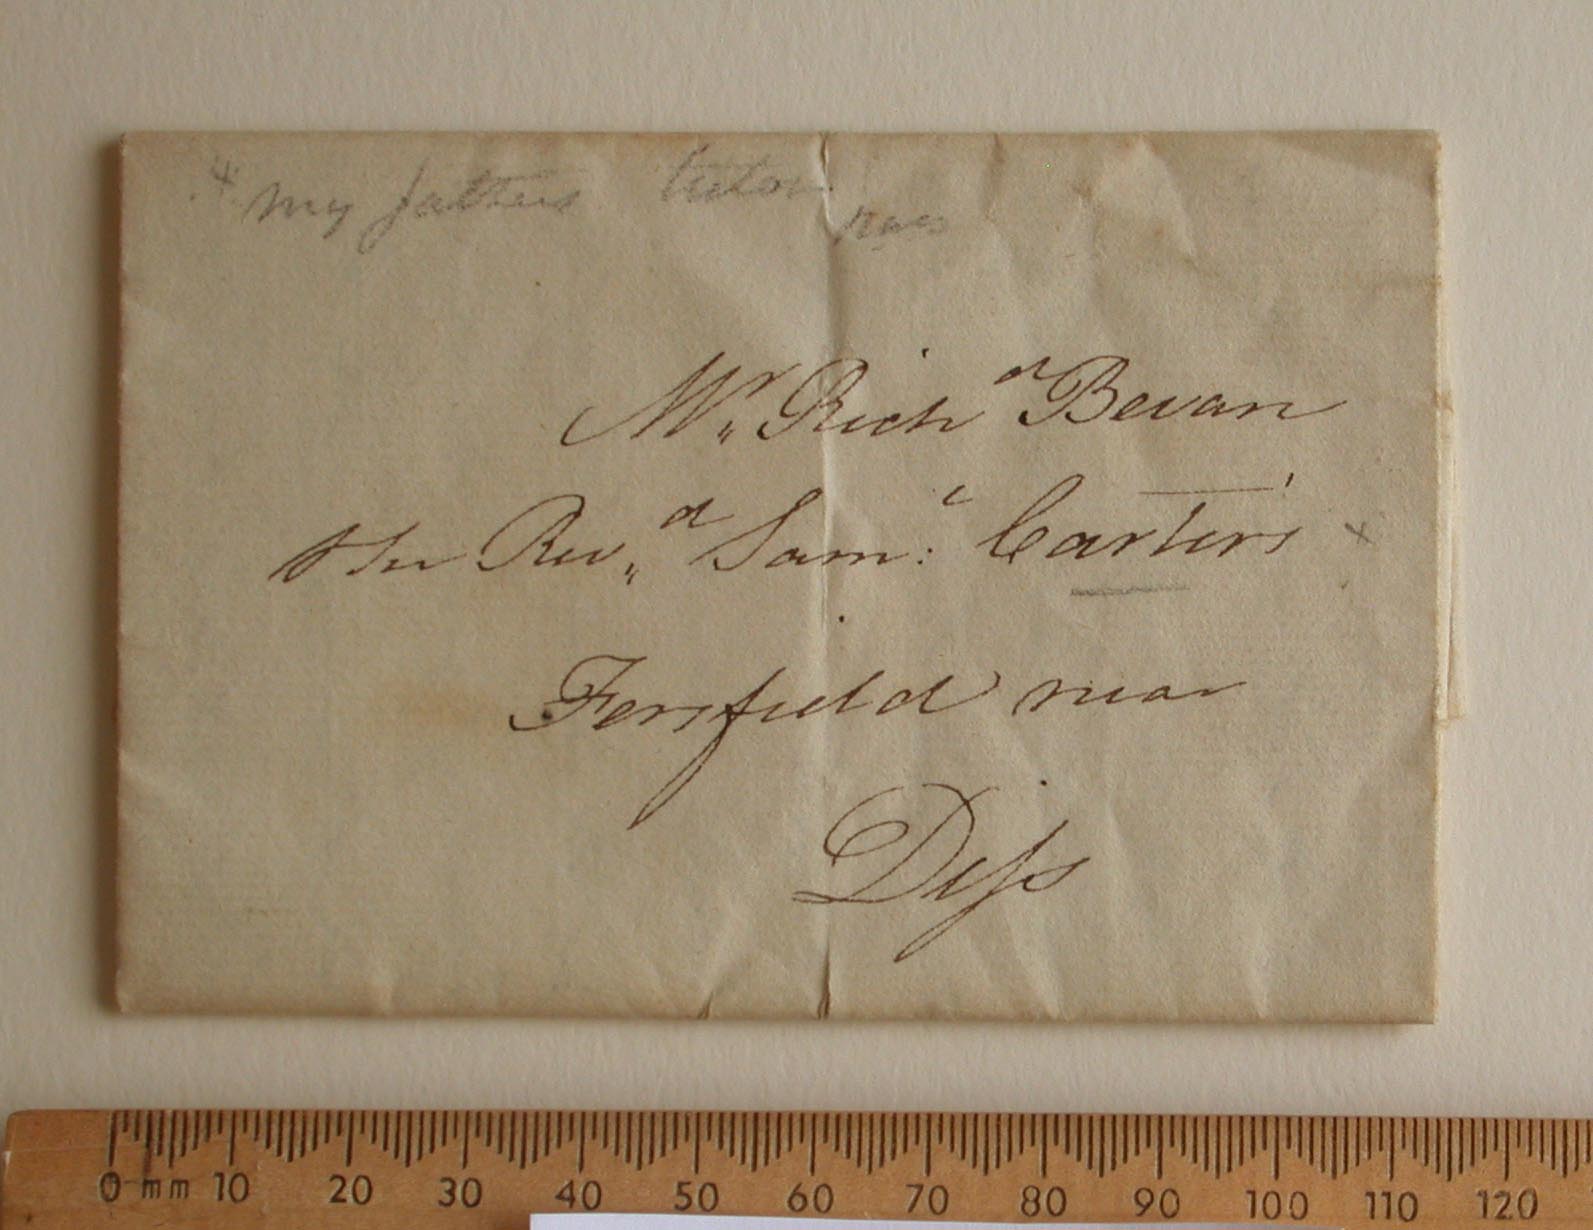 x my fathers tutor
Mr. Richd Bevan
the Revd. Saml: Carter's x
Fersfield near
Diſs
0 mm 10 20 30 40 50 60 70 80 90 100 110 120